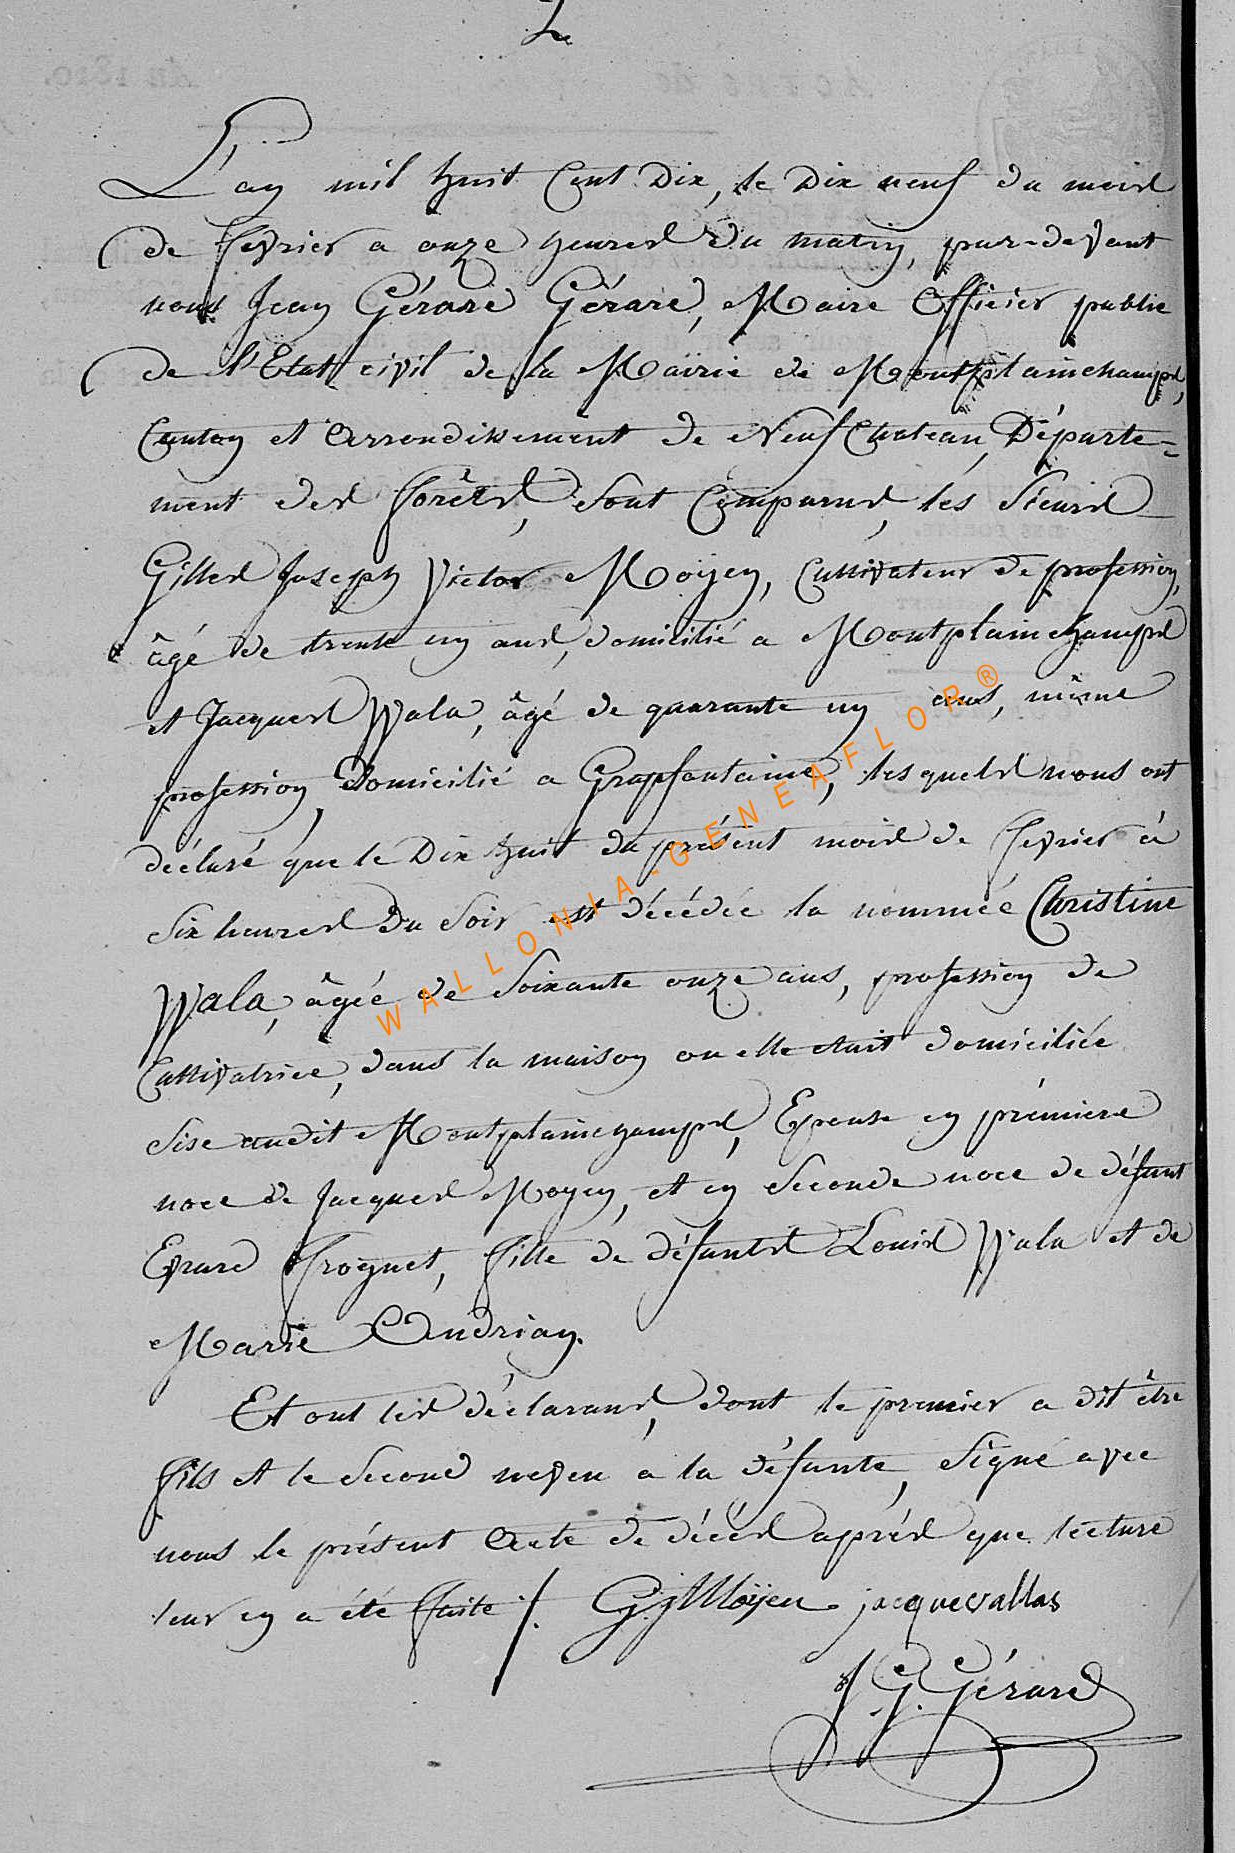 2
L'an mil huit Cent Dix, le Dix neuf du mois
de fevrier a onze heures du matin, par-devant
nous Jean Gérard Gérard, Maire Officier public
de l'Etat civil de la Mairie de Montplainchamps,
Canton et Arrondissement de Neufchateau, Départe-
ment des forêts, Sont Comparus, les Sieurs
Gilles Joseph Victor Moÿen, Cultivateur de profession,
âgé de trente un ans, domicilié a Montplainchamps
et Jacques Wala, âgé de quarante un ans, même
profession, Domicilié a Grapfontaine, lesquels nous ont
déclaré que le Dix huit du présent mois de fevrier à
Six heures Du Soir est décédée la nommée Christine
Wala, âgée de Soixante onze ans, profession de
Cultivatrice, dans la maison ou elle etait domiciliée
Sise audit Montplainchamps, Epouse en première
noce de Jacques Moyen, et en Seconde noce de défunt
Evrard frognet, fille de défunts Louis Wala et de
Marie Andrian.
Et ont les déclarans, dont le premier a dit être
fils et le Second neveu a la défunte, Signé avec
nous le présent Acte de décès après que lecture
leur en a été faite /. G. j Moÿen jacquevallas
J. G. Gérard
WALLONIA-GENEAFLOR®